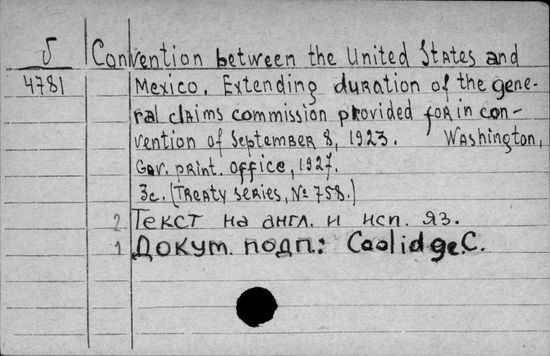 5 Convention between the United States and
4781 Mexico. Extending duration of the gene-
ral claims commission provided for in con-
vention of September 8, 1923. Washington,
Gov. print. office, 1927.
3c. (Treaty series, № 758.)
2 Текст на англ. и исп. яз.
1 Докум. подп.: Coolidge C.